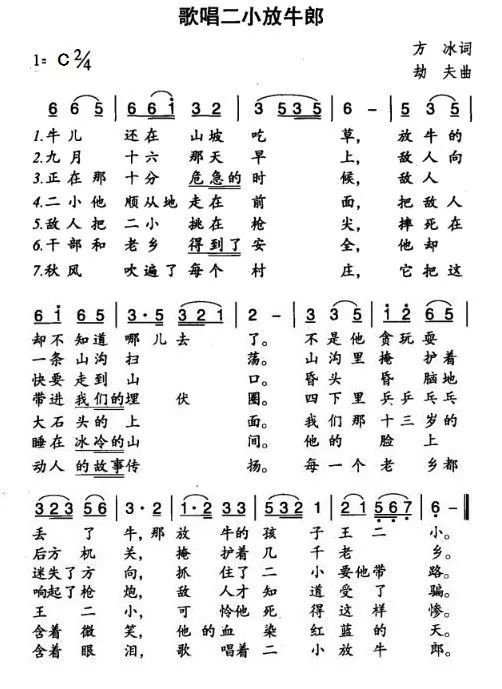 歌唱二小放牛郎
方 冰词
1= C 2/4
劫 夫曲
6 6 5 | 6 6 i 3 2 | 3 5 3 5 | 6 - | 5 3 5 |
1.牛儿 还在 山坡吃 草, 放牛的
2.九月 十六 那天早 上, 敌人向
3.正在那 十分 危急的时 候, 敌人
4.二小他 顺从地 走在前 面, 把敌人
5.敌人把 二小 挑在枪 尖, 摔死在
6.干部和 老乡 得到了安 全, 他却
7.秋风 吹遍了 每个村 庄, 它把这
6 i 6 5 | 3·5 3 2 1 | 2 - | 3 3 5 | i 2 6 5 |
却不 知道 哪儿去 了。 不是他 贪玩耍
一条 山沟 扫 荡。 山沟里 掩护着
快要 走到 山 口。 昏头 昏脑地
带进 我们的埋 伏 圈。 四下里 乒乒乓乓
大石 头的上 面。 我们那 十三岁的
睡在 冰冷的山 间。 他的 脸上
动人 的故事传 扬。 每一个 老乡都
3 2 3 5 6 | 3·2 | i·2 3 3 | 5 3 2 1 | 2 1 5 6 7 | 6 - ‖
丢了 牛,那 放牛的 孩子 王二 小。
后方 机 关, 掩护着 几千 老 乡。
迷失了 方 向, 抓住了 二小 要他带 路。
响起了 枪 炮, 敌人才 知道 受了 骗。
王 二 小, 可怜他 死得 这样 惨。
含着 微 笑, 他的血 染红 蓝的 天。
含着 眼 泪, 歌唱着 二小 放牛 郎。